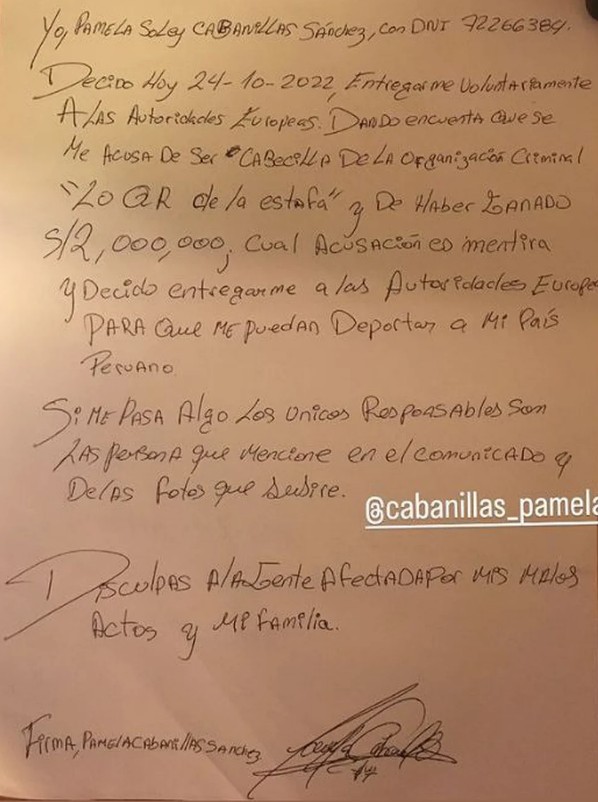 Yo, PAMELA SoLey CABANILLAS SÁnchez, con DNI 72266384.
Decido Hoy 24-10-2022, Entregarme VoluntAriamente
A LAS Autoridades Europeas. DANDO encuentA Que Se
Me AcusA De Ser CABecillA DE LA Organización Criminal
"LO QR de la estafa" y De HAber GANADO
S/2,000,000, Cual Acusación es mentira
y Decido entregarme a las Autoridades Europe
PARA Que ME puedan Deportar a Mi País
Peruano.
Si ME PASA Algo Los Unicos Responsables Son
LAS persona que Mencione en el comunicado y
De las fotos que Subire.
@cabanillas_pamela
Disculpas A lA Gente AfectADA por mis MAlos
Actos y Mi familia.
Firma, PAMELA CABANillas SANchez